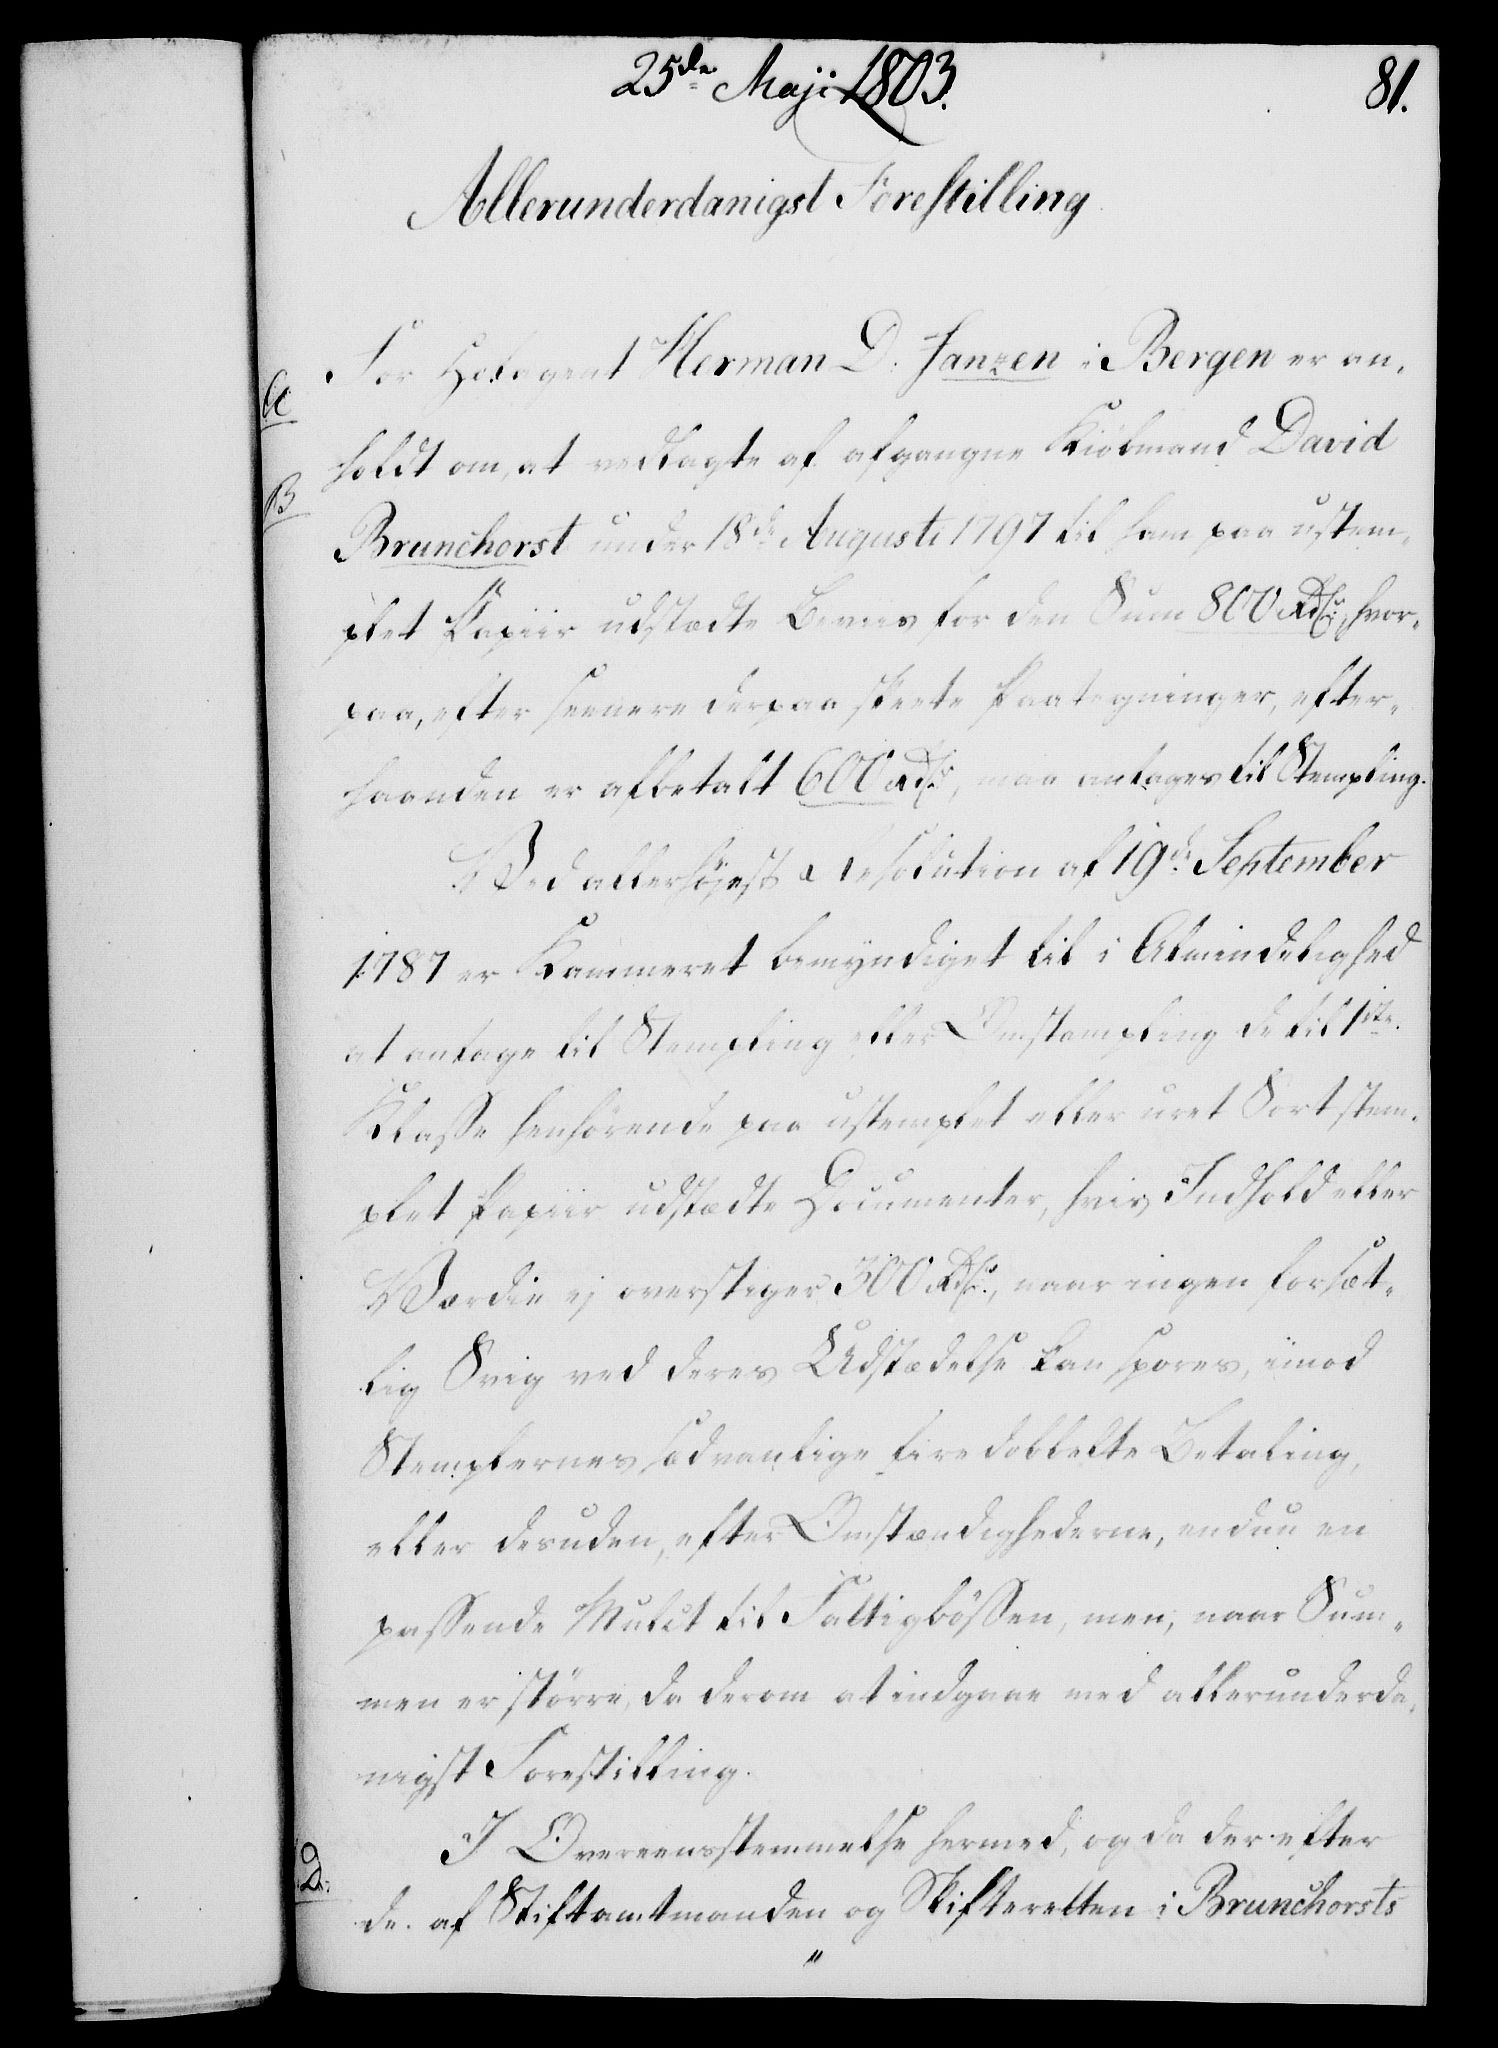 25de Maji 1803.
81.
Allerunderdanigst Forestilling
A
For Hofagent Herman D. Janzen i Bergen er an-
holdt om, at vedlagte af afgangne Kiöbmand David
B
Brunchorst under 18de Augusti 1797 til ham paa ustem-
plet Papiir udstædte Beviis for den Sum 800 Rdlr, hvor-
paa, efter seenere derpaa skeete Paategninger, efter-
haanden er afbetalt 600 Rdlr, maa antages til Stempling.
Ved allerhöjeste Resolution af 19de September
1787 er Kammeret bemyndiget til i Almindelighed
at antage til Stempling eller Omstempling de til 1ste
Klasse henhörende paa ustemplet eller uret Sort stem-
plet Papiir udstædte Documenter, hvis Indhold eller
Værdie ej overstiger 300 Rdlr., naar ingen forsæt-
lig Svig ved deres Udstædelse kan spores, imod
Stemplernes sædvanlige firedobbelte Betaling,
eller desuden, efter Omstændighederne, endnu en
passende Mulct til Fattigbössen, men, naar Sum-
men er större, da derom at indgaae med allerunderda-
nigst Forestilling.
I Overeensstemmelse hermed, og da der efter
D.
de af Stiftamtmanden og Skifteretten i Brunchorsts
"